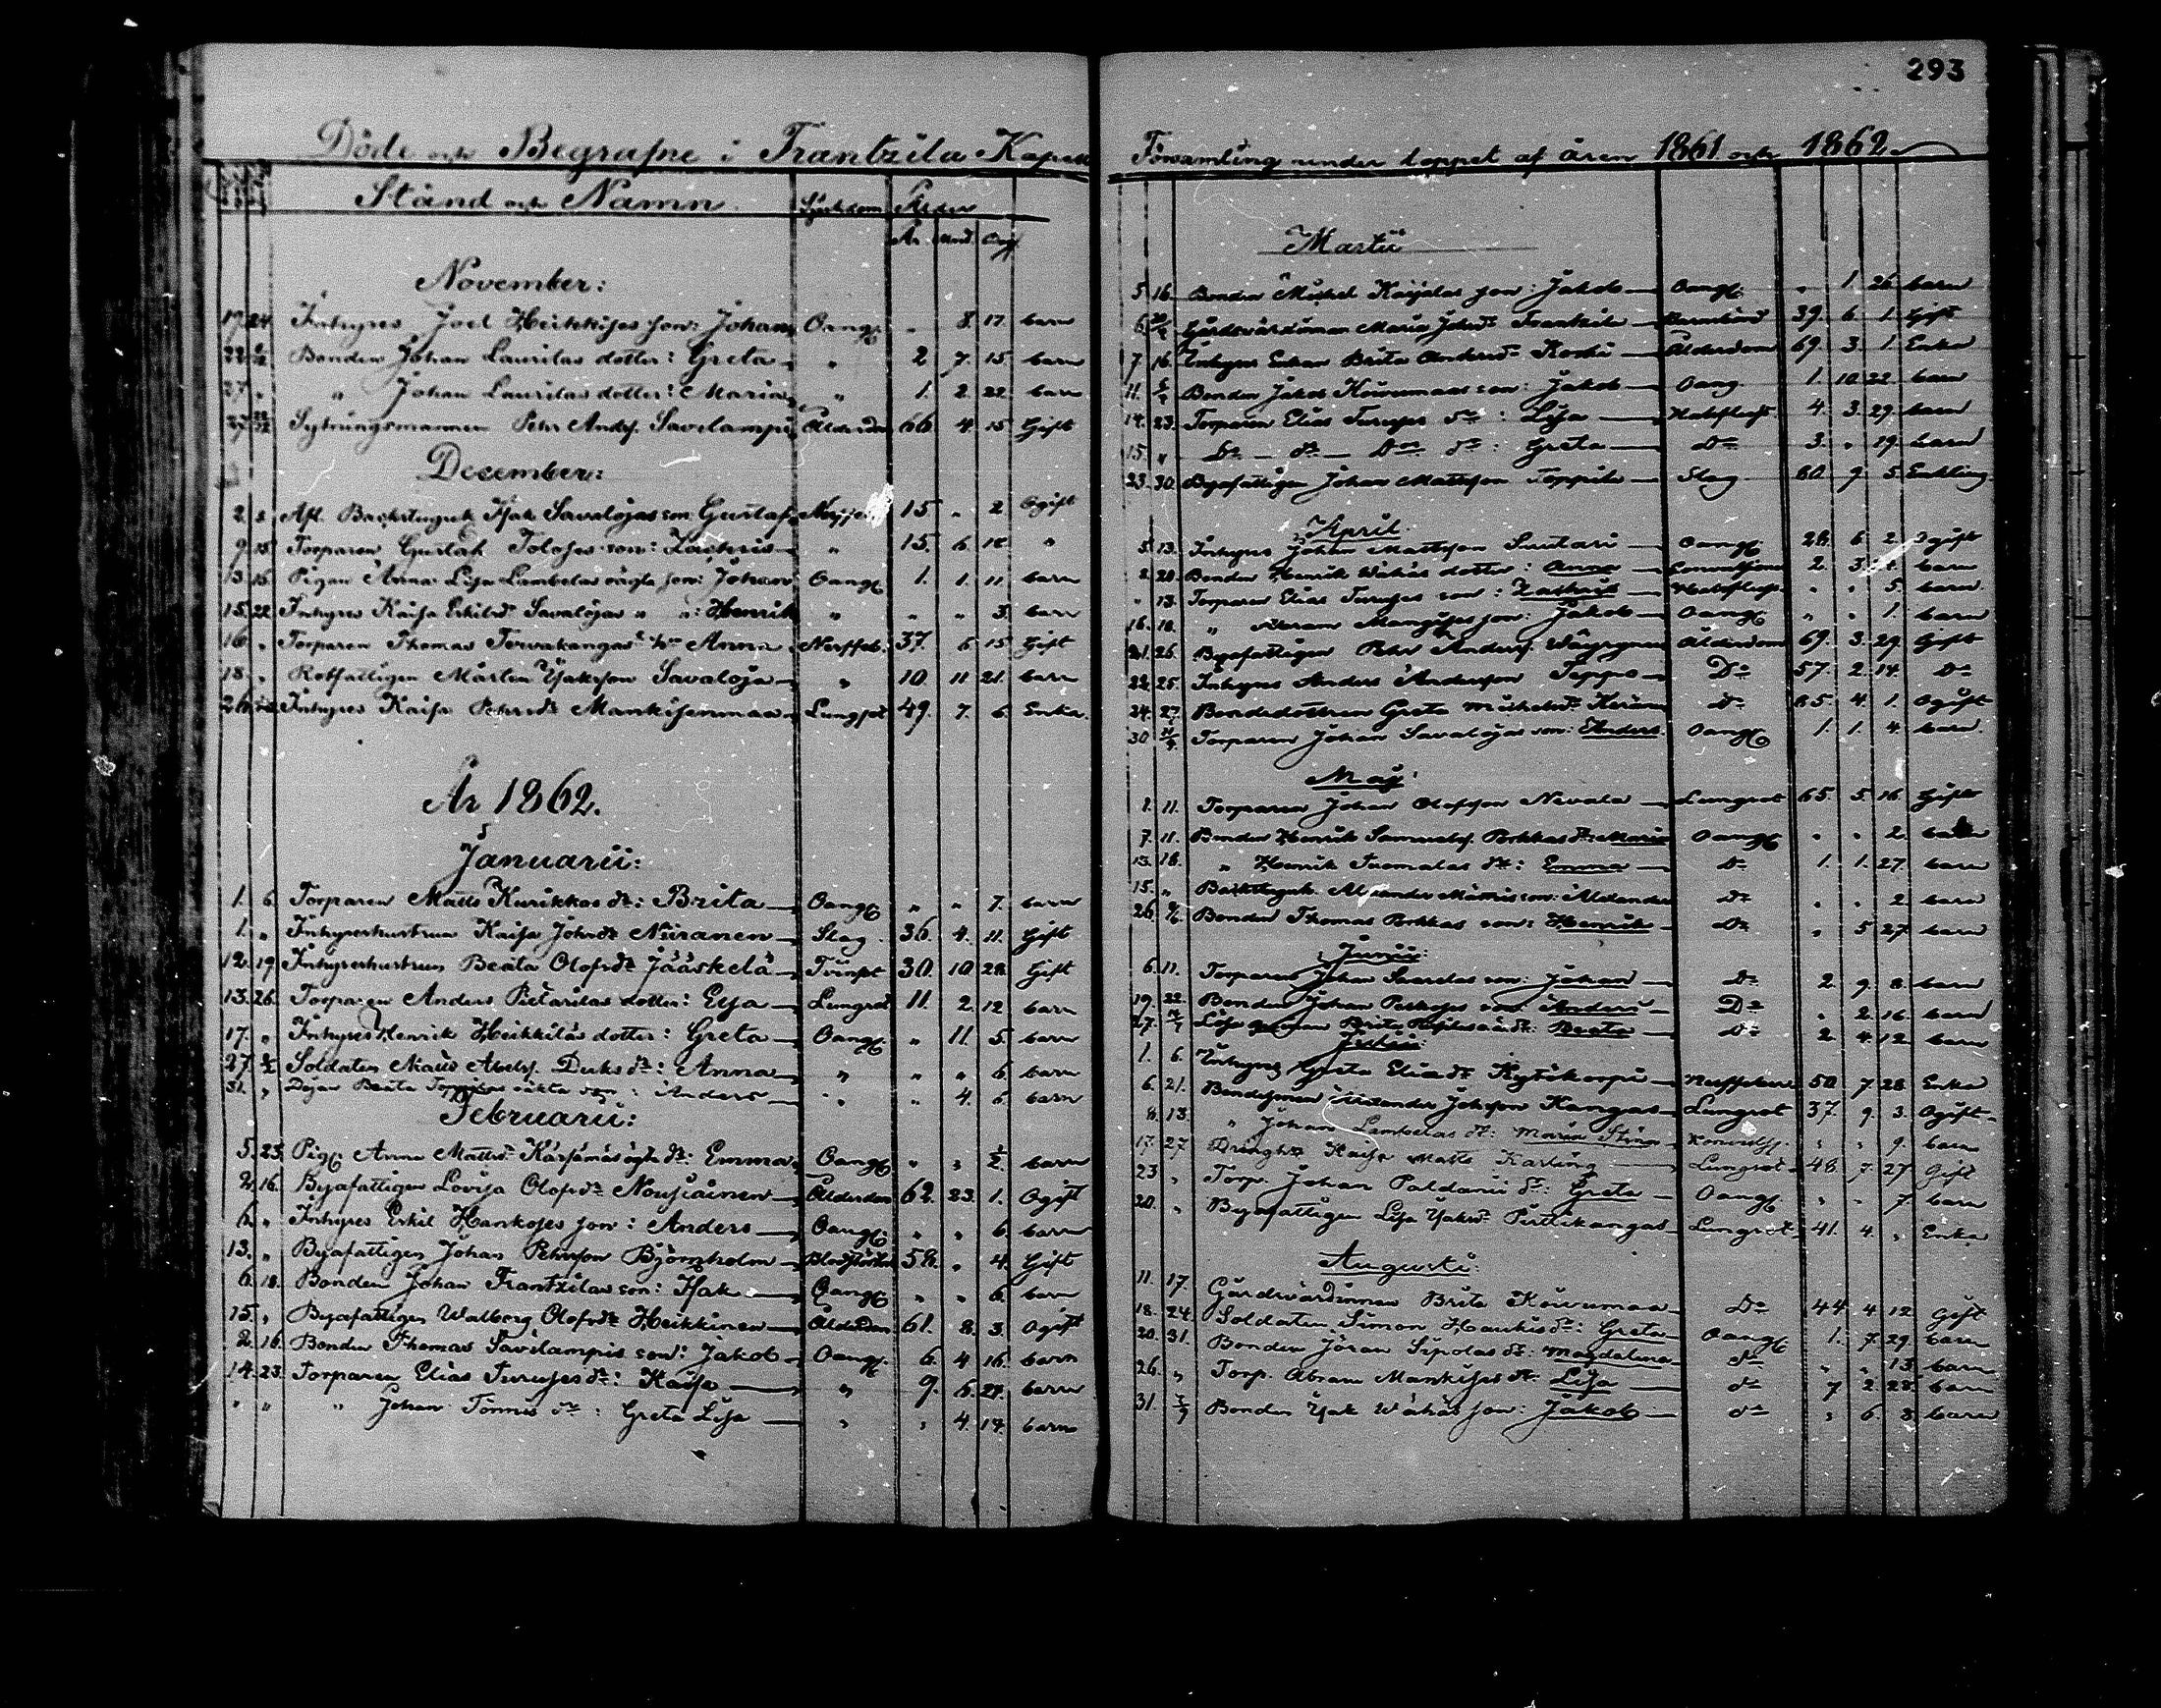 293
Döde och Begrafne i Frantzila Kapell
Stånd och Namn Sjukdom Ålder
År Mnd Dag
November:
17. 24. Inhyses Joel Heikkises son: Johan Oangf. " 8. 17 barn
22. Bonden Johan Laurilas dotter: Greta " 2 7. 15. barn
27. " " Johan Laurilas dotter: Maria " 1. 2. 22 barn
27. Sytningsmannen Pehr Andf. Savilampi Ålderdom 66 4. 15 Gift
December:
2. 8. Afl. Backstuguk Isak Savalojas son Gustaf 15 " 2 Ogift
9. 15 Torparen Gustaf Toloses son: Zachris " 15. 6. 18 "
13. 15. Pigan Anna Lisa Lambelas oägta son: Johan Oangf. 1. 1. 11 barn
15. 22 Inhyses Kaisa Erkilsdr Savalojas " ": Henrik " " " 3. barn
16 " Torparen Thomas Torvakangas hu Anna Nerffeb. 37. 6 15 Gift
18. " Rotfattigen Mårten Isaksson Savaloja " 10 11 21. barn
26. Inhyses Kaisa Pehrsdr Mankisenmaa Lungsot 49. 7. 6. Enka.
År 1862.
Januarii:
1. 6. Torparen Matts Kurikkas dr: Brita Oangf. " " 7. barn
1. " Inhyseshustrun Kaisa Johsdr Niiranen Slag. 36. 4. 11. Gift
12. 19 Inhyseshustrun Beata Olofsdr Jääskelä Tvinsot 30. 10 28. Gift
13. 26. Torparen Anders Pietarilas dotter: Elsa Lungsot 11. 2. 12 barn
17. " Inhyses Henrik Heikkiläs dotter: Greta Oangf. " 11. 5. barn
27. 2/2 Soldaten Matts Abelsf. Duks dr: Anna " " " 6. barn
31. " Pigan Beata oäkta : Anders " " 4. 6. barn
Februarii:
5. 23. Pig. Anna Mattsdr Kärsämäs ägta dr: Emma Oangf. " " ½ barn
2. 16. Byafattigen Lovisa Olofsdr Nousiainen Ålderdom 62. 23. 1. Ogift
6. " Inhyses Erkil Hankoses son: Anders Oangf. " " 6. barn
13. " Byafattigen Johan Pehrsson Björnholm Blodstörtn 58. " 4. Gift
6. 18. Bonden Johan Frantzilas son: Isak Oangf. " " 6. barn
15. " Byafattigen Walborg Olofsdr Heikkinen Ålderdom 61. 8. 3. Ogift
2. 16. Bonden Thomas Savilampis son: Jakob Oangf. 6. 4 16. barn
14. 23. Torparen Elias Turuses dr: Kaisa " 9. 6. 27. barn
" " " Johan Tönnis dr: Greta Lisa " " 4. 17. barn
Församling under loppet af åren 1861 och 1862
Martii
5. 16. Bonden Michel Kaijalas son: Jakob Oangf. " 1. 26. barn
6. Gårdsvärdinnan Maria Johsdr Frantzila Barnsbörd 39. 6. 1. Gift
7. 16. Inhyses Enkan Brita Andersdr Koski Ålderdom 69. 3. 1. Enka
11. Bonden Jakob Koivumaas son: Jakob Oang. 1. 10. 22. barn
14. 23. Torparen Elias Turuses dr: Lisa Halsfluss 4. 3. 29. barn
15. " Do do Do do: Greta do 3. " 19. barn
23. 30. Byafattigen Johan Mattsson Toppila Slag 60 9. 5. Enkling
April
5. 13. Inhyses Johan Mattsson Suutari Oangf. 28. 6. 2. Ogift
8. 20. Bonden Henrik Wähäs dotter: Anna 2. 3. barn
" 13. Torparen Elias Turuses son: Zachris Halsfluss. " " 5. barn.
16. 18. " Abram Mangises son: Jakob Oangf. " " 1. barn
21. 26. Byafattigen Pehr Andersf. Wäyrynen Ålderdom 69. 3. 29. Gift
22. 25. Inhyses Anders Andersson Seppo Do 57. 2. 14. Do
24. 27. Bondedottren Greta Michelsdr Do 4. 1. Ogift
30 Torparen Johan Savalojas son: Anders. Oangf. 1. 1. 4. barn.
Maj
1. 11. Torparen Johan Olofsson Nevala Lungsot 65. 5. 16. Gift
7. 11. Bonden Henrik Samuelsf. Pokkas dr: Maria Oangf. " " 2. barn
13. 18. " Henrik Tuomalas dr: Emma Do 1. 1. 27. barn
15. " Backstuguk. Alexander son: Alexander Do " " 2. barn
26. Bonden Thomas Pokkas son: Henrik Do " 5 27 barn
Junii:
6. 11. Torparen Johan Saarelas son: Johan Do 2. 9. 8. barn
19. 22. Bonden Johan son: Anders Do " 2. 16. barn
27. Brita dr: Beata Do 2. 4. 12 barn
Julii:
1. 6. Inhyses Greta Eliasdr Kytökorpi 50. 7. 28. Enka
6. 21. Bondesonen Alexander Johsson Kangas Lungsot 37. 9. 3. Ogift
8. 13. " Johan Lambelas dr: Maria Stina " " 9. barn
17. 27 Kaisa Matts Karling Lungsot 48. 7. 27 Gift
23 " Torp. Johan Paldanii dr: Greta Oangf. " " 7. barn
20. " Byafattigen Lisa Isaksdr Pirttikangas Lungsot 41. 4. " Enka
Augusti:
11. 17. Gårdsvärdinnan Brita Koivumaa Do 44. 4. 12 Gift
18. 24. Soldaten Simon Haukis dr: Greta Oangf. 1. 7. 29. barn
20. 31. Bonden Jöran Sipolas dr: Magdalena Do " " 13. barn
26. " Torp. Abram Mankises dr: Lisa Do 7 2. 28. barn
31. 7/9 Bonden Isak Wähäs son: Jakob Do " 6. 8. barn